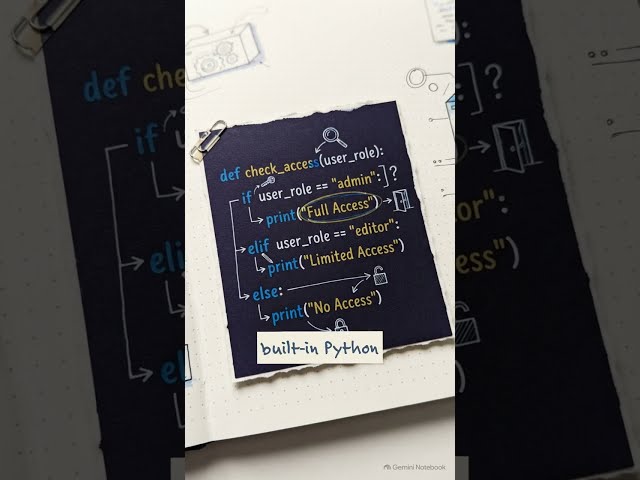 def check_access(user_role):
if user_role == "admin":]?
print("Full Access")
elif user_role == "editor":
print("Limited Access")
else:
print("No Access")
built-in Python
Gemini Notebook